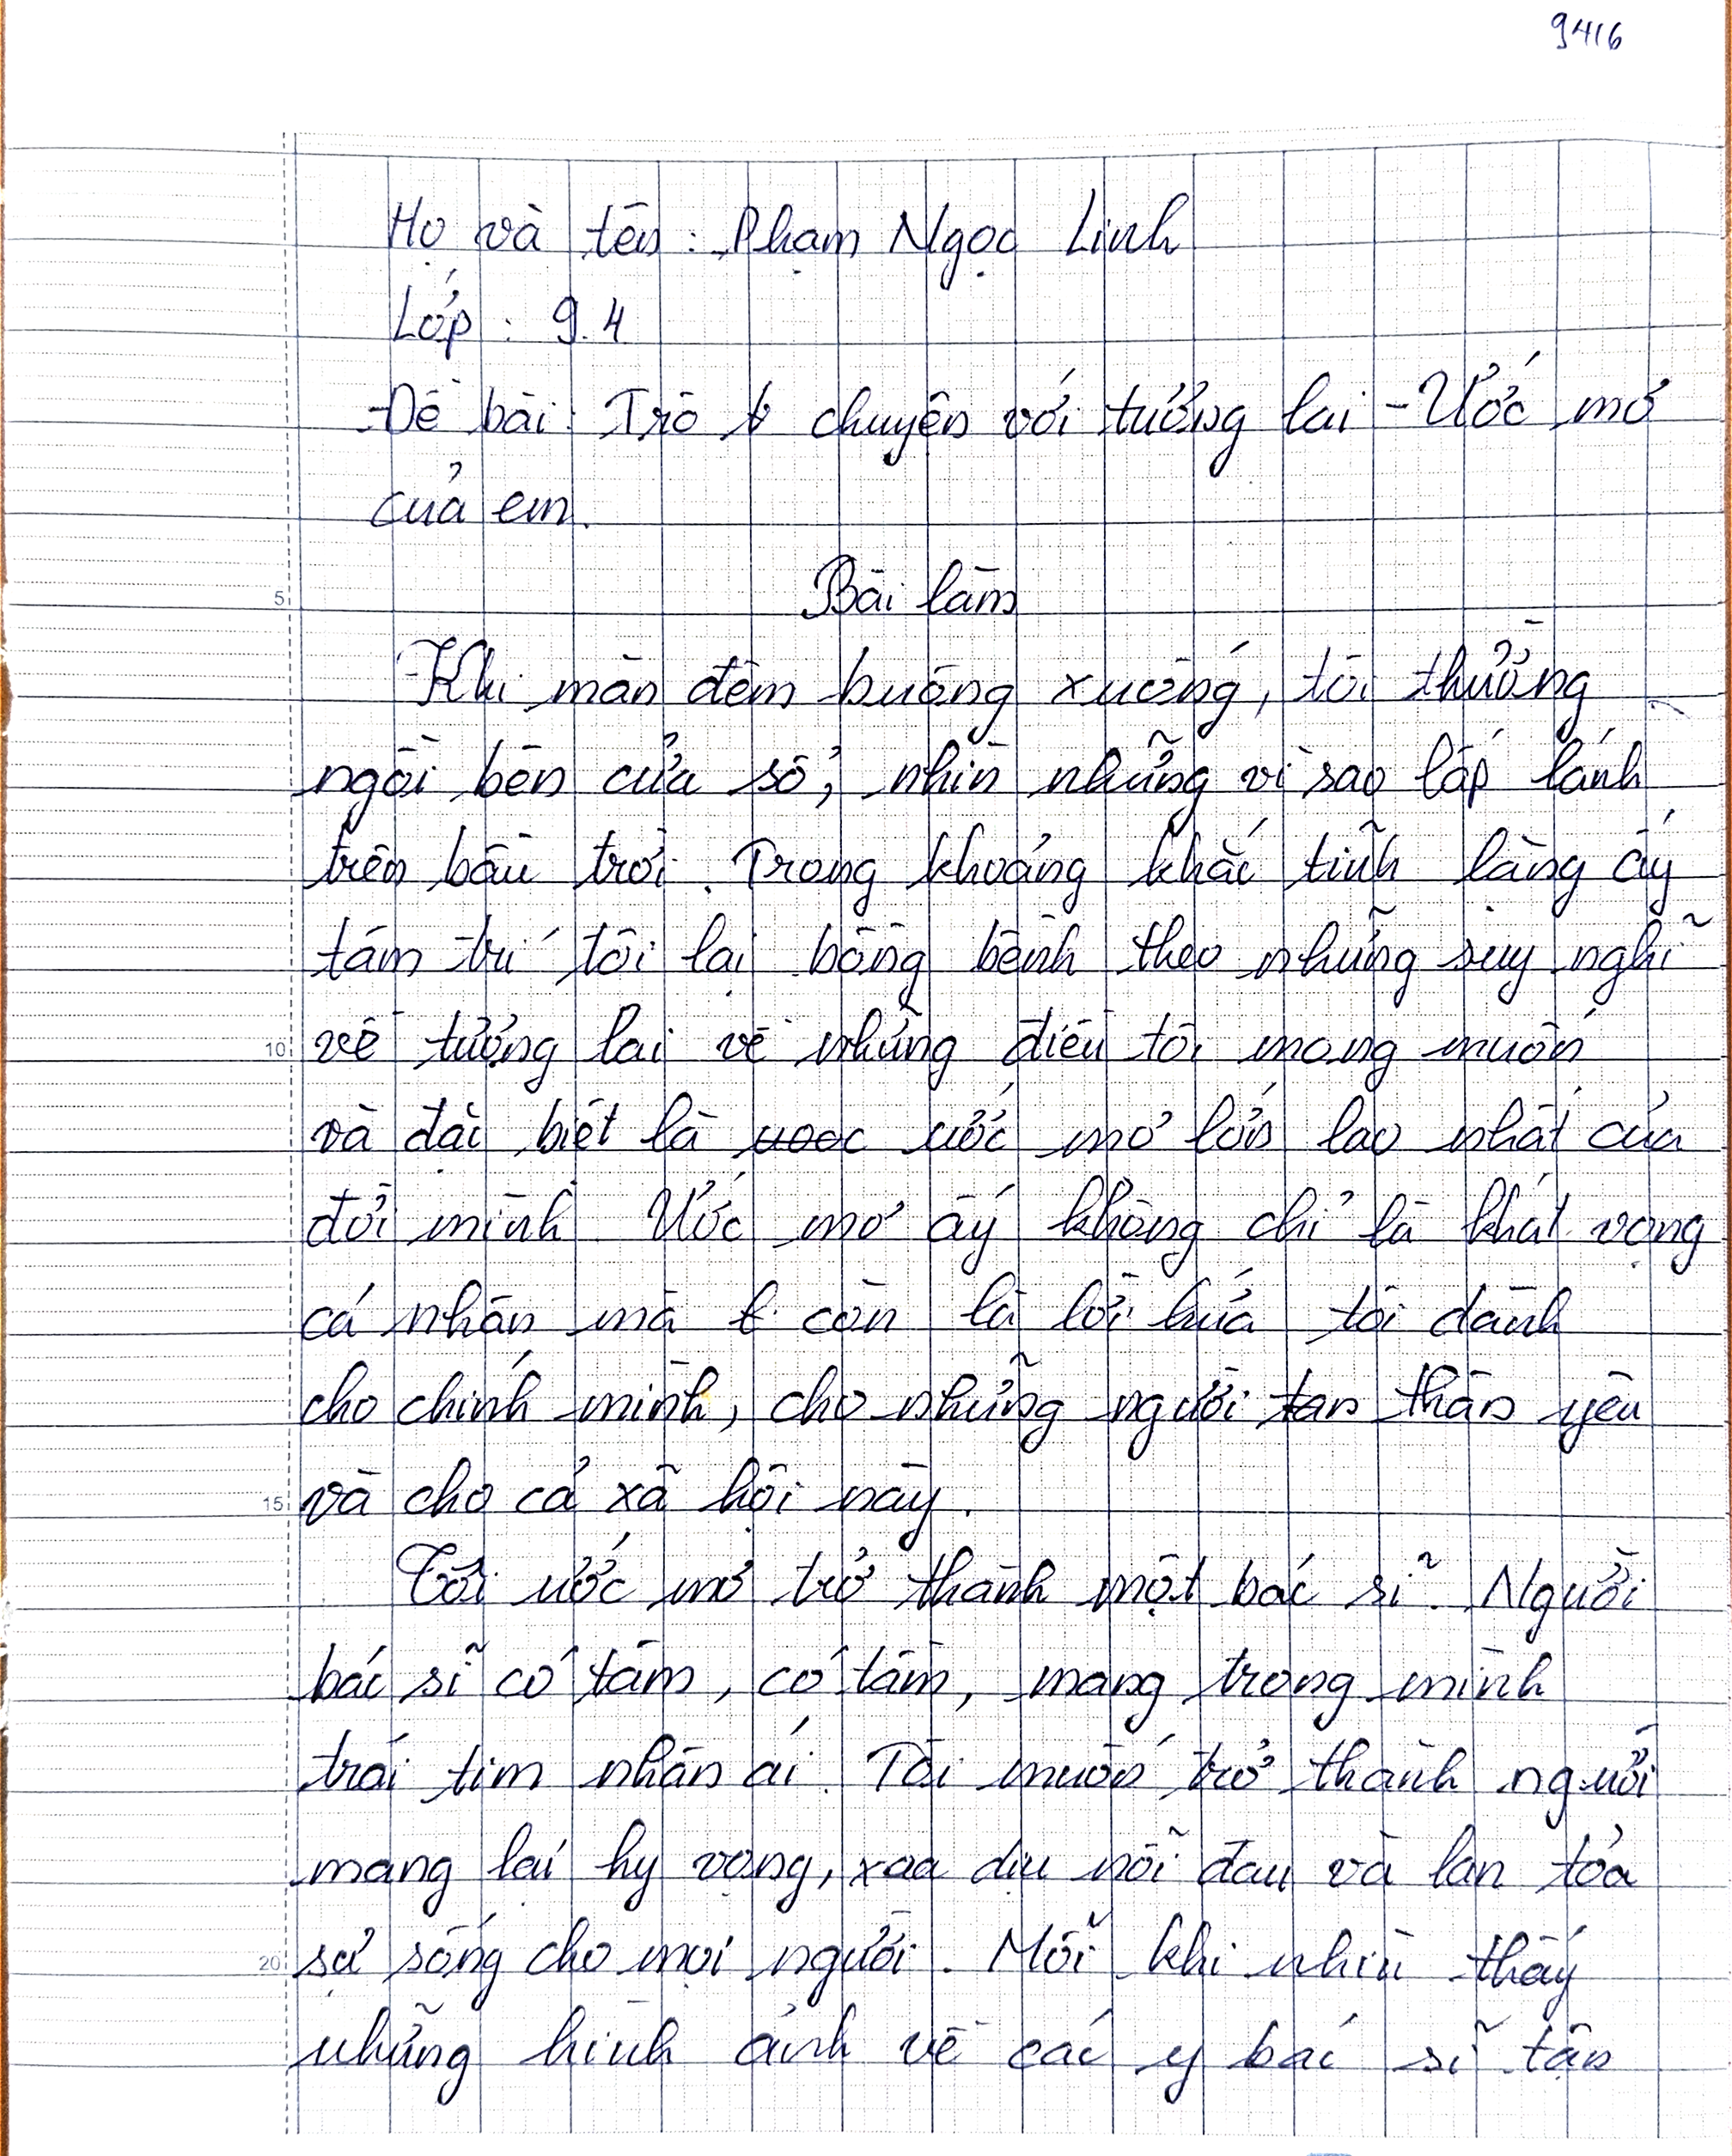 9416
Họ và tên : Phạm Ngọc Linh
Lớp : 9.4
Đề bài : Trò chuyện với tương lai - Ước mơ
của em.
Bài làm
Khi màn đêm buông xuống, tôi thường
ngồi bên cửa sổ, nhìn những vì sao lấp lánh
trên bầu trời. Trong khoảng khắc tĩnh lặng ấy
tâm trí tôi lại bồng bềnh theo những suy nghĩ
về tương lai về những điều tôi mong muốn
và đặc biệt là ước mơ lớn lao nhất của
đời mình Ước mơ ấy không chỉ là khát vọng
cá nhân mà còn là lời hứa tôi dành
cho chính mình, cho những người thân yêu
và cho cả xã hội này.
Tôi ước mơ trở thành một bác sĩ. Người
bác sĩ có tâm, có tầm, mang trong mình
trái tim nhân ái. Tôi muốn trở thành người
mang lại hy vọng, xoa dịu nỗi đau và lan tỏa
sự sống cho mọi người. Mỗi khi nhìn thấy
những hình ảnh về các y bác sĩ tận
5
10
15
20